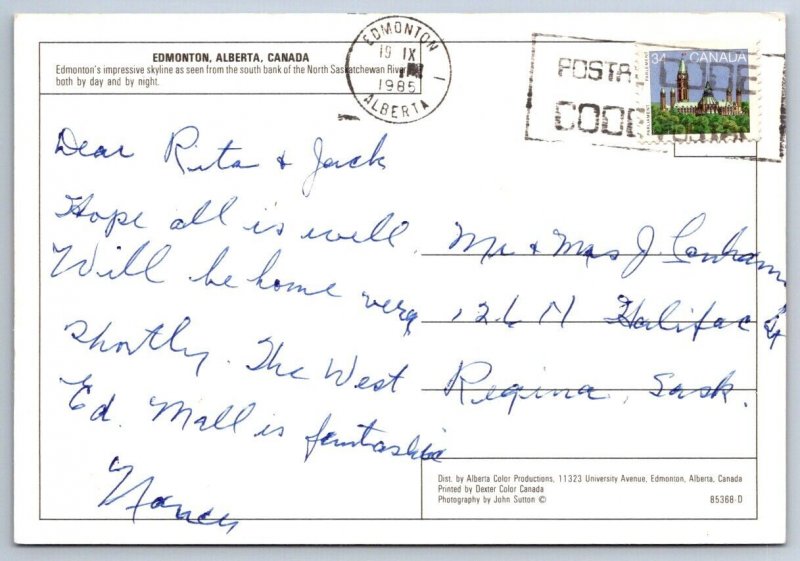 EDMONTON, ALBERTA, CANADA
Edmonton's impressive skyline as seen from the south bank of the North Saskatchewan River
both by day and by night.
EDMONTON
19 IX
1985
ALBERTA
POSTAL CODE
CODE POSTAL
34 CANADA
PARLIAMENT
PARLEMENT
Dear Rita & Jack
Hope all is well.
Will be home very
shortly. The West
Ed. Mall is fantastic
Nancy
Mr & Mrs J.
Halifax St
Regina, Sask.
Dist. by Alberta Color Productions, 11323 University Avenue, Edmonton, Alberta, Canada
Printed by Dexter Color Canada
Photography by John Sutton ©
85368-D